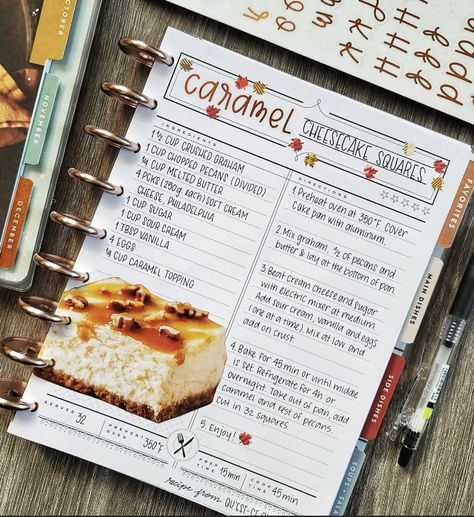 OCTOBER
NOVEMBER
DECEMBER
caramel
CHEESECAKE SQUARES
INGREDIENTS
1 ½ CUP CRUSHED GRAHAM
1 CUP CHOPPED PECANS (DIVIDED)
¼ CUP MELTED BUTTER
4 PCKS (250g each) SOFT CREAM
CHEESE, PHILADELPHIA
1 CUP SUGAR
1 CUP SOUR CREAM
1 TBSP VANILLA
4 EGGS
¼ CUP CARAMEL TOPPING
DIRECTIONS
1. Preheat oven at 350°F. Cover
cake pan with aluminum.
2. Mix graham, ½ of pecans and
butter & lay at the bottom of pan.
3. Beat cream cheese and sugar
with electric mixer at medium.
Add sour cream, vanilla and eggs
(one at a time). Mix at low and
add on crust.
4. Bake for 45 min or until middle
is set. Refrigerate for 4h or
overnight. Take out of pan, add
caramel and rest of pecans.
Cut in 32 squares.
5. Enjoy!
SERVES 32
PREHEAT OVEN 350°F
PREP TIME 15min
COOK TIME 45min
recipe from QU'EST-CE
DESSERTS
MAIN DISHES
SIDE DISHES
SOUPS + SALA